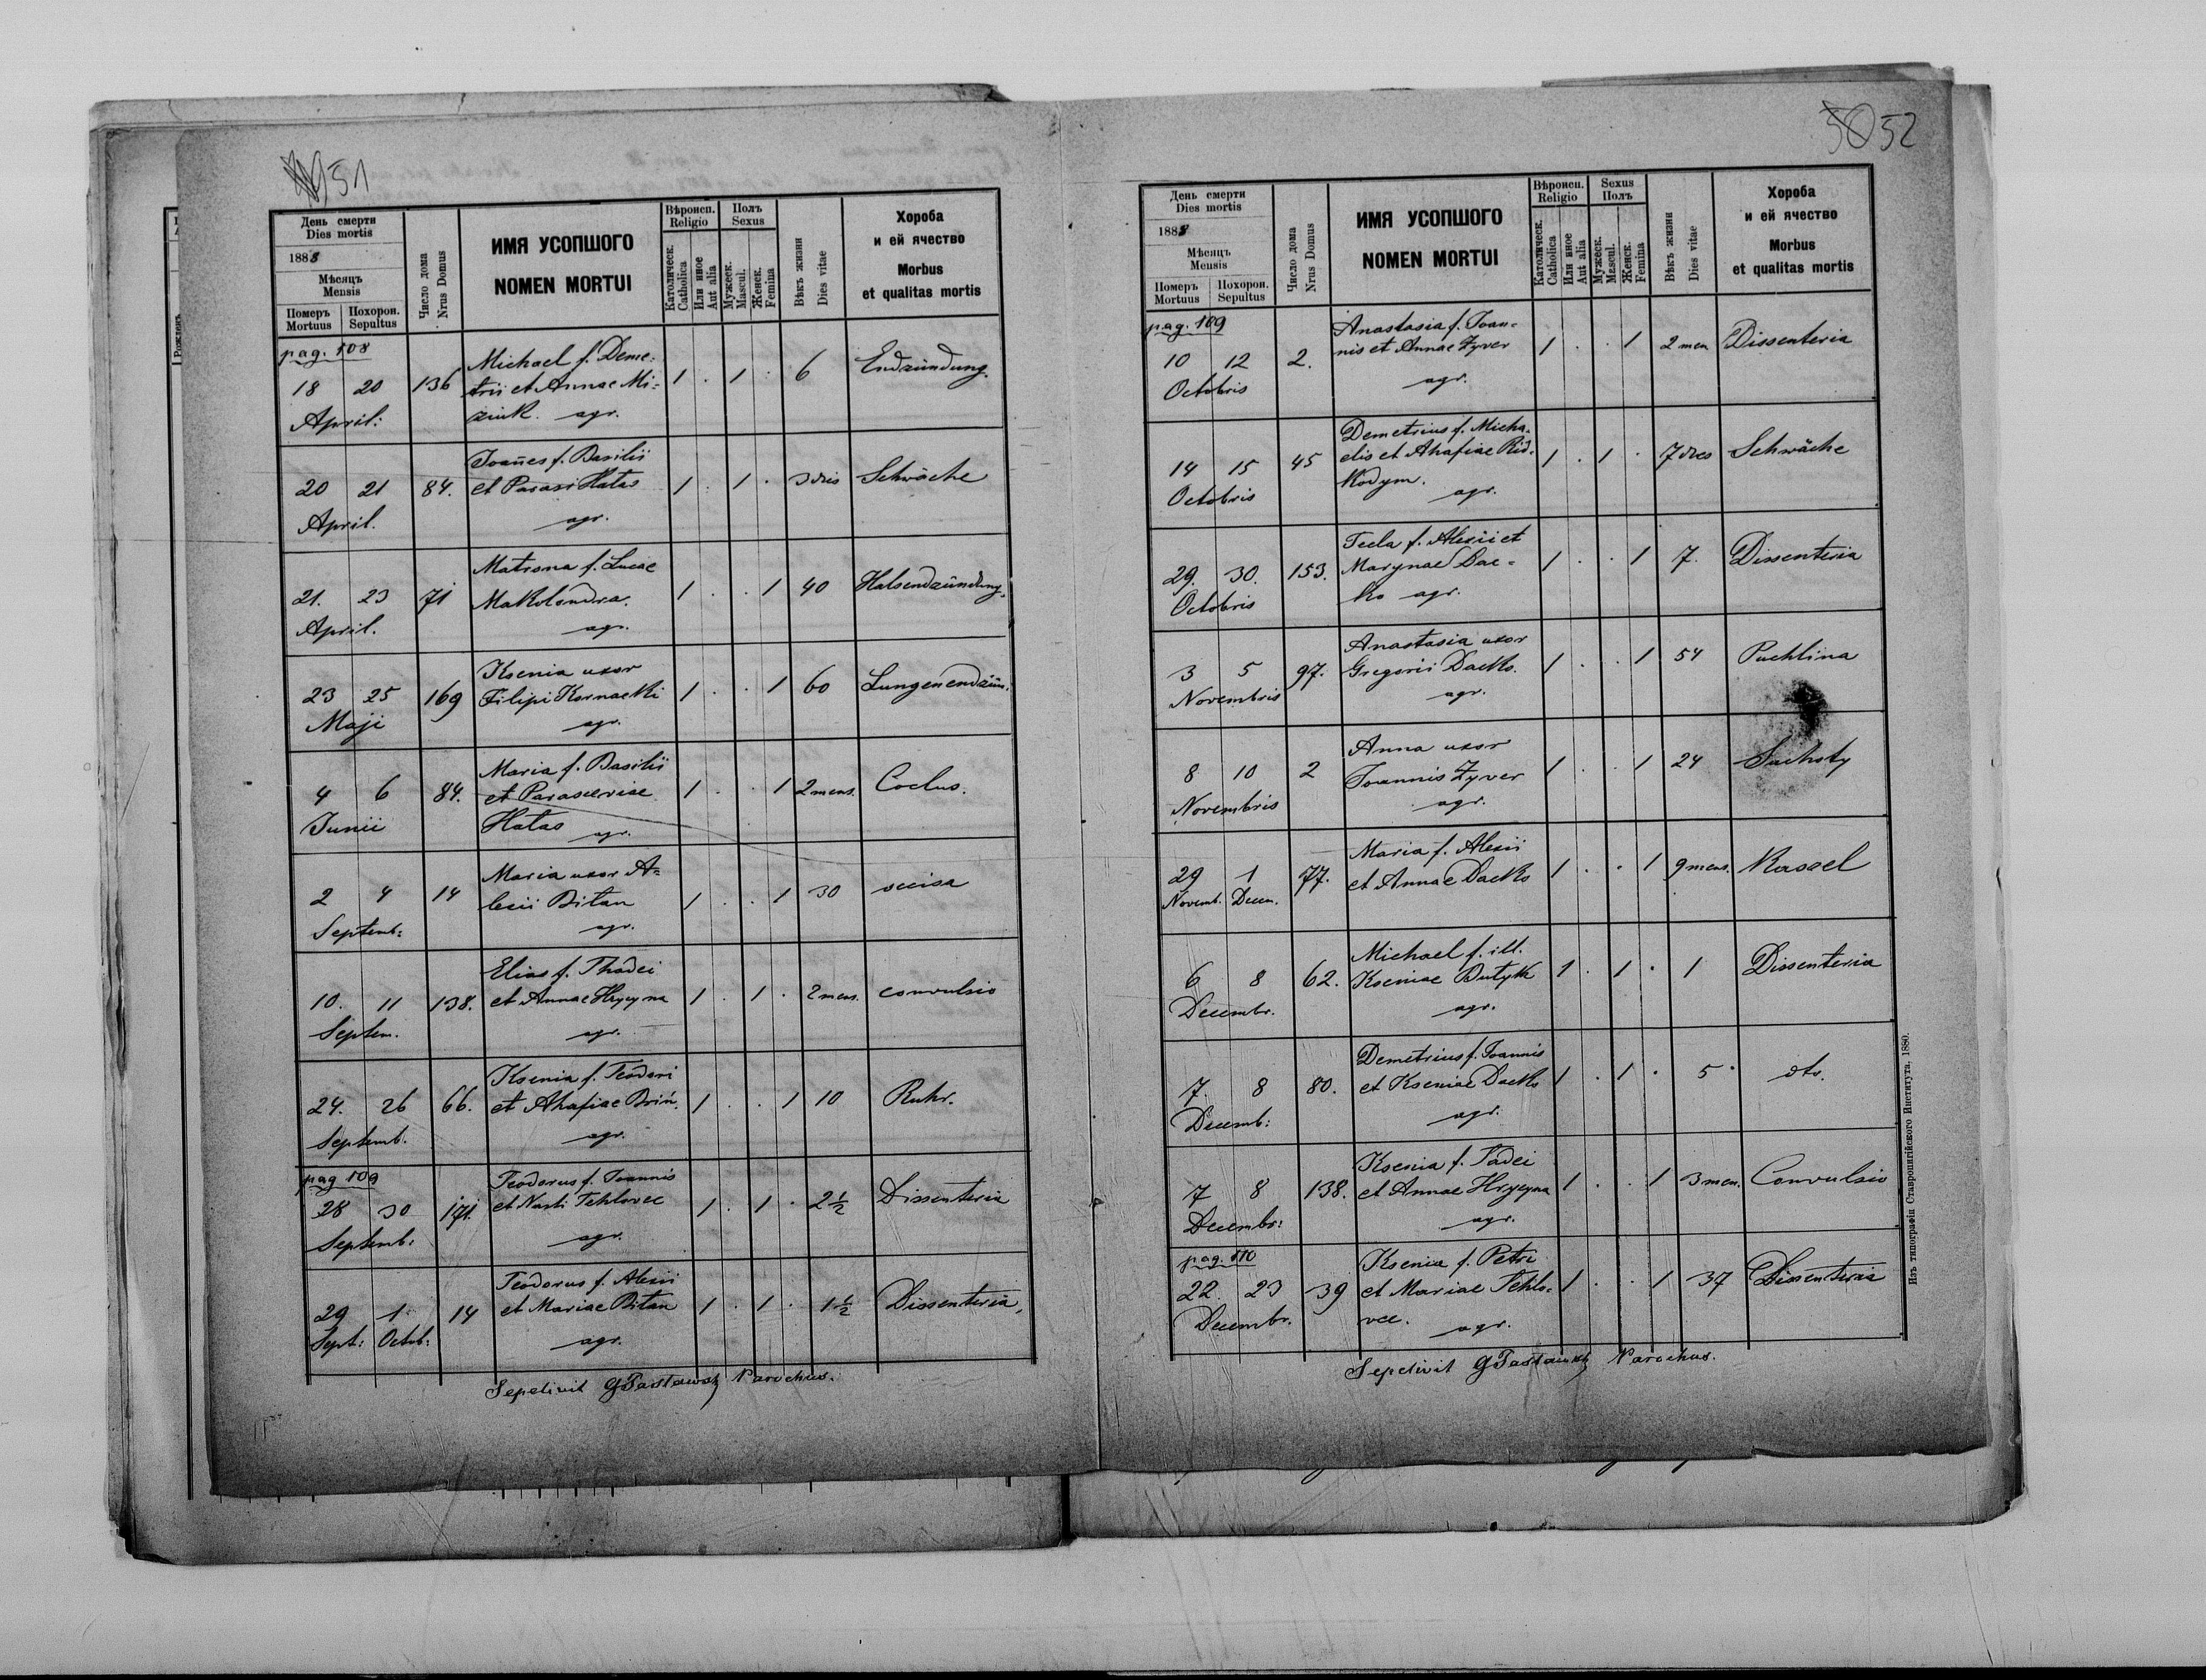 51
День смерти
Dies mortis
1888
Мѣсяцъ
Mensis
Померъ
Mortuus
Похорон.
Sepultus
Число дома
Nrus Domus
ИМЯ УСОПШОГО
NOMEN MORTUI
Вѣроисп.
Religio
Католическ.
Catholica
Или иное
Aut alia
Полъ
Sexus
Мужеск.
Mascul.
Женск.
Femina
Вѣкъ жизни
Dies vitae
Хороба
и ей ячество
Morbus
et qualitas mortis
pag. 108
Michael f. Deme=
18 20 136 trii et Annae Mi= 1 . 1 . 6 Endzündung.
April: ziuk. agr.
Joañes f. Basilii
20 21 84. et Parasc Hatas 1 . 1 . 3 dies Schwäche
April. agr.
Matrona f. Lucae
21. 23 71 Makolondra. 1 . . 1 40 Halsendzündung.
April. agr.
Ksenia uxor
23 25 169 Filipi Kornacki 1 . . 1 60 Lungenendzün.
Maji agr.
Maria f. Basilii
4 6 84. et Parasceviae 1 . . 1 2 mens. Coclus.
Junii Hatas agr.
Maria uxor A=
2 4 14 lexii Bitan 1 . . 1 30 occisa
Septemb: agr.
Elias f. Thadei
10. 11 138. et Annae Hrycyna 1 . 1 . 2 mens. convulsio
Septem. agr.
Ksenia f. Teodori
24. 26 66. et Ahafiae Briń. 1 . . 1 10 Ruhr.
Septemb. agr.
pag 109
Teodorus f. Joannis
28 30 171. et Nasti Tchlovec 1 . 1 . 2 1/2 Dissenteria
Septemb: agr.
Teodorus f. Alexii
29 1 14 et Mariae Bitan 1 . 1 . 1 1/2 Dissenteria,
Sept: Octob: agr.
Sepelivit Parochus.
50 52
День смерти
Dies mortis
1888
Мѣсяцъ
Mensis
Померъ
Mortuus
Похорон.
Sepultus
Число дома
Nrus Domus
ИМЯ УСОПШОГО
NOMEN MORTUI
Вѣроисп.
Religio
Католическ.
Catholica
Или иное
Aut alia
Sexus
Полъ
Мужеск.
Mascul.
Женск.
Femina
Вѣкъ жизни
Dies vitae
Хороба
и ей ячество
Morbus
et qualitas mortis
pag. 109
Anastasia f. Joan=
10 12 2. nis et Annae Zyver 1 . . 1 2 men Dissenteria
Octobris agr.
Demetrius f. Micha=
14 15 45 elis et Ahafiae Rid= 1 . 1 . 7 dies Schwäche
Octobris kodym. agr.
Tecla f. Alexii et
29. 30. 153. Marynae Dac= 1 . . 1 7. Dissenteria
Octobris ko agr.
Anastasia uxor
3 5 97. Gregorii Dacko. 1 . . 1 54 Puchlina
Novembris agr.
Anna uxor
8 10 2 Joannis Zyver 1 . . 1 24 Suchoty
Novembris agr.
Maria f. Alexii
29 1 77. et Annae Dacko 1 . . 1 9 mens. Kaszel
Novemb. Decem.
Michael f. ill.
6 8 62. Kseniae Dutyk 1 . 1 . 1 Dissenteria
Decembr. agr.
Demetrius f. Joannis
7. 8 80. et Kseniae Dacko 1 . 1 . 5 dto.
Decemb: agr.
Ksenia f. Tadei
7 8 138. et Annae Hrycyna 1 . . 1 3 men. Convulsio
Decembr: agr.
pag. 110
Ksenia f. Petri
22. 23 39 et Mariae Tchlo= 1 . . 1 37 Dissenteria
Decembr. vec. agr.
Sepelivit Parochus.
Изъ типографіи Ставропигійского Института. 1880.